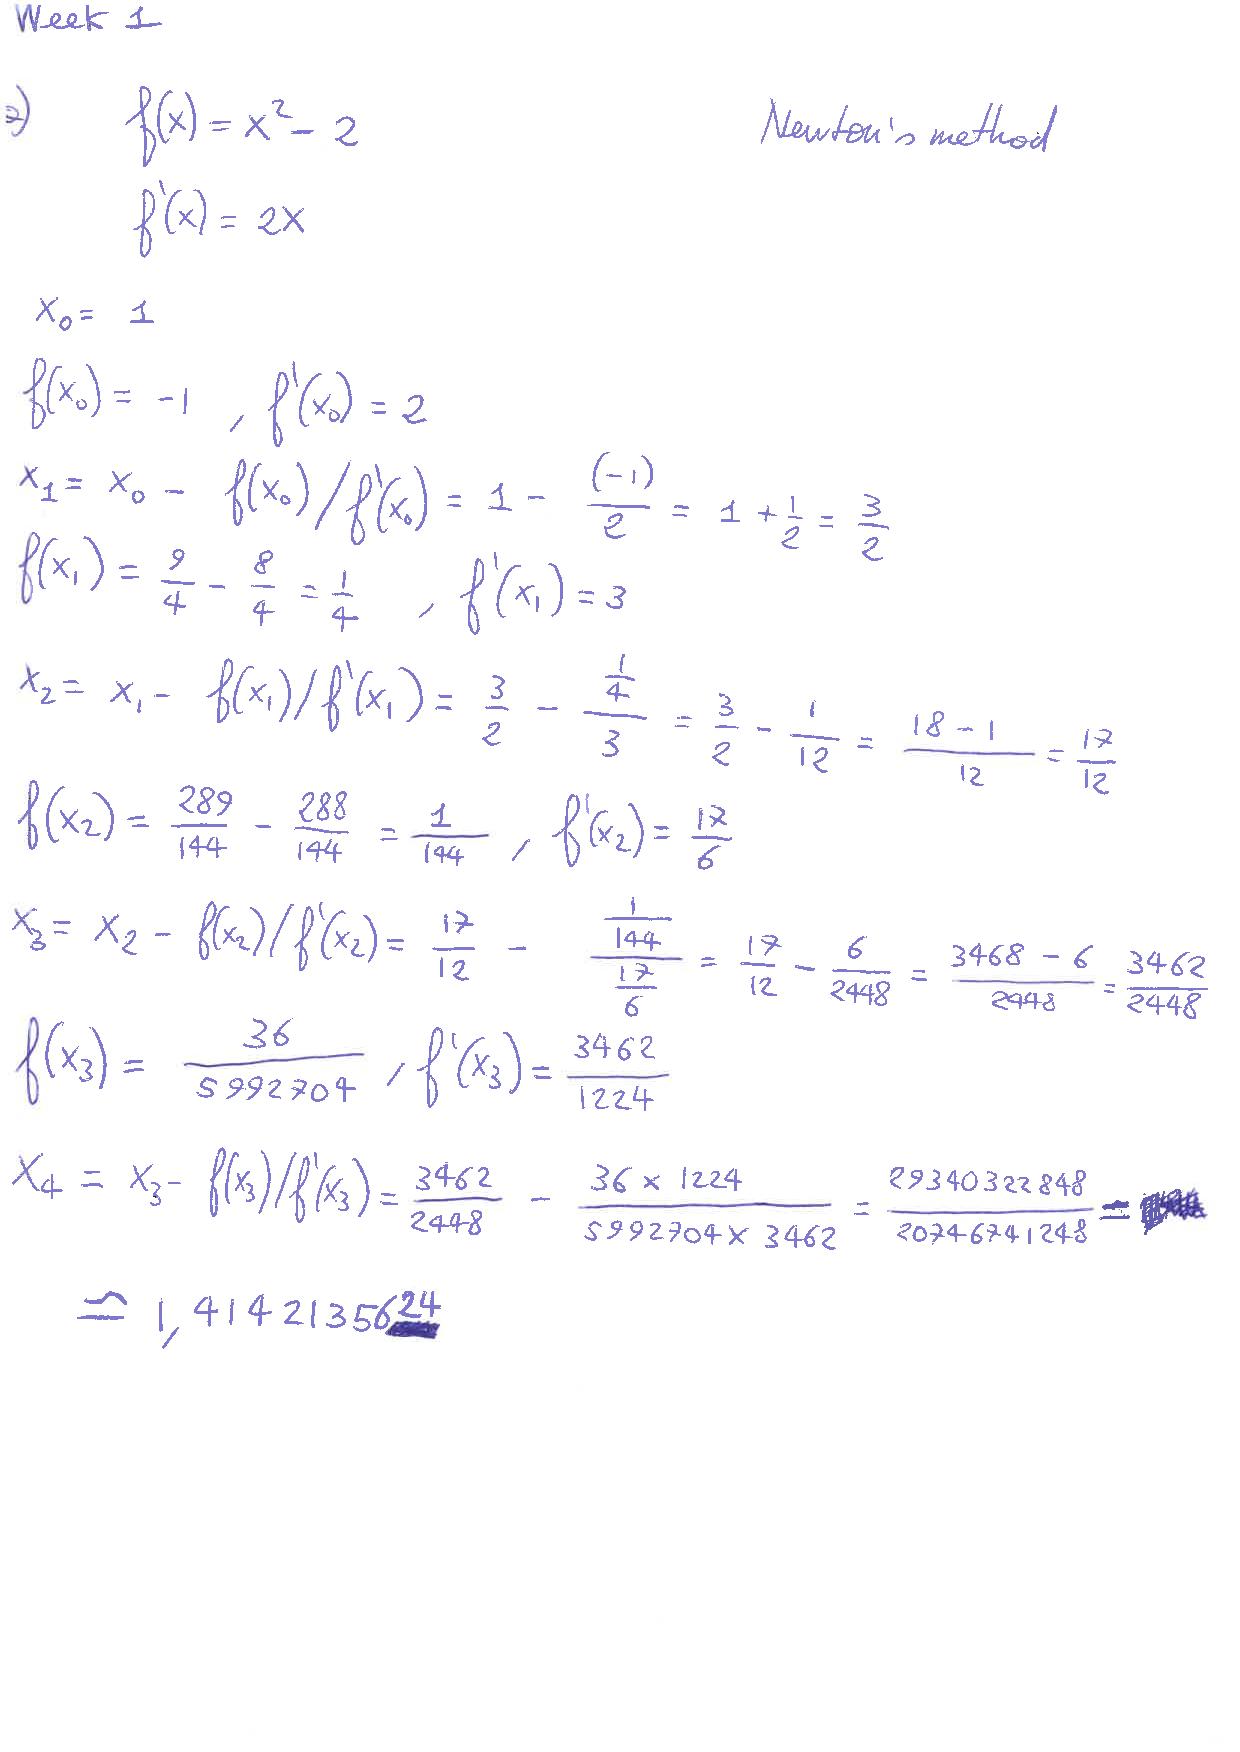 Week 1
2) f(x) = x² - 2 Newton's method
f'(x) = 2x
x₀ = 1
f(x₀) = -1 , f'(x₀) = 2
x₁ = x₀ - f(x₀)/f'(x₀) = 1 - (-1)/2 = 1 + 1/2 = 3/2
f(x₁) = 9/4 - 8/4 = 1/4 , f'(x₁) = 3
x₂ = x₁ - f(x₁)/f'(x₁) = 3/2 - (1/4)/3 = 3/2 - 1/12 = (18 - 1)/12 = 17/12
f(x₂) = 289/144 - 288/144 = 1/144 , f'(x₂) = 17/6
x₃ = x₂ - f(x₂)/f'(x₂) = 17/12 - (1/144)/(17/6) = 17/12 - 6/2448 = (3468 - 6)/2448 = 3462/2448
f(x₃) = 36/5992704 , f'(x₃) = 3462/1224
x₄ = x₃ - f(x₃)/f'(x₃) = 3462/2448 - (36 × 1224)/(5992704 × 3462) = 29340322848/20746741248 =
≃ 1,4142135624